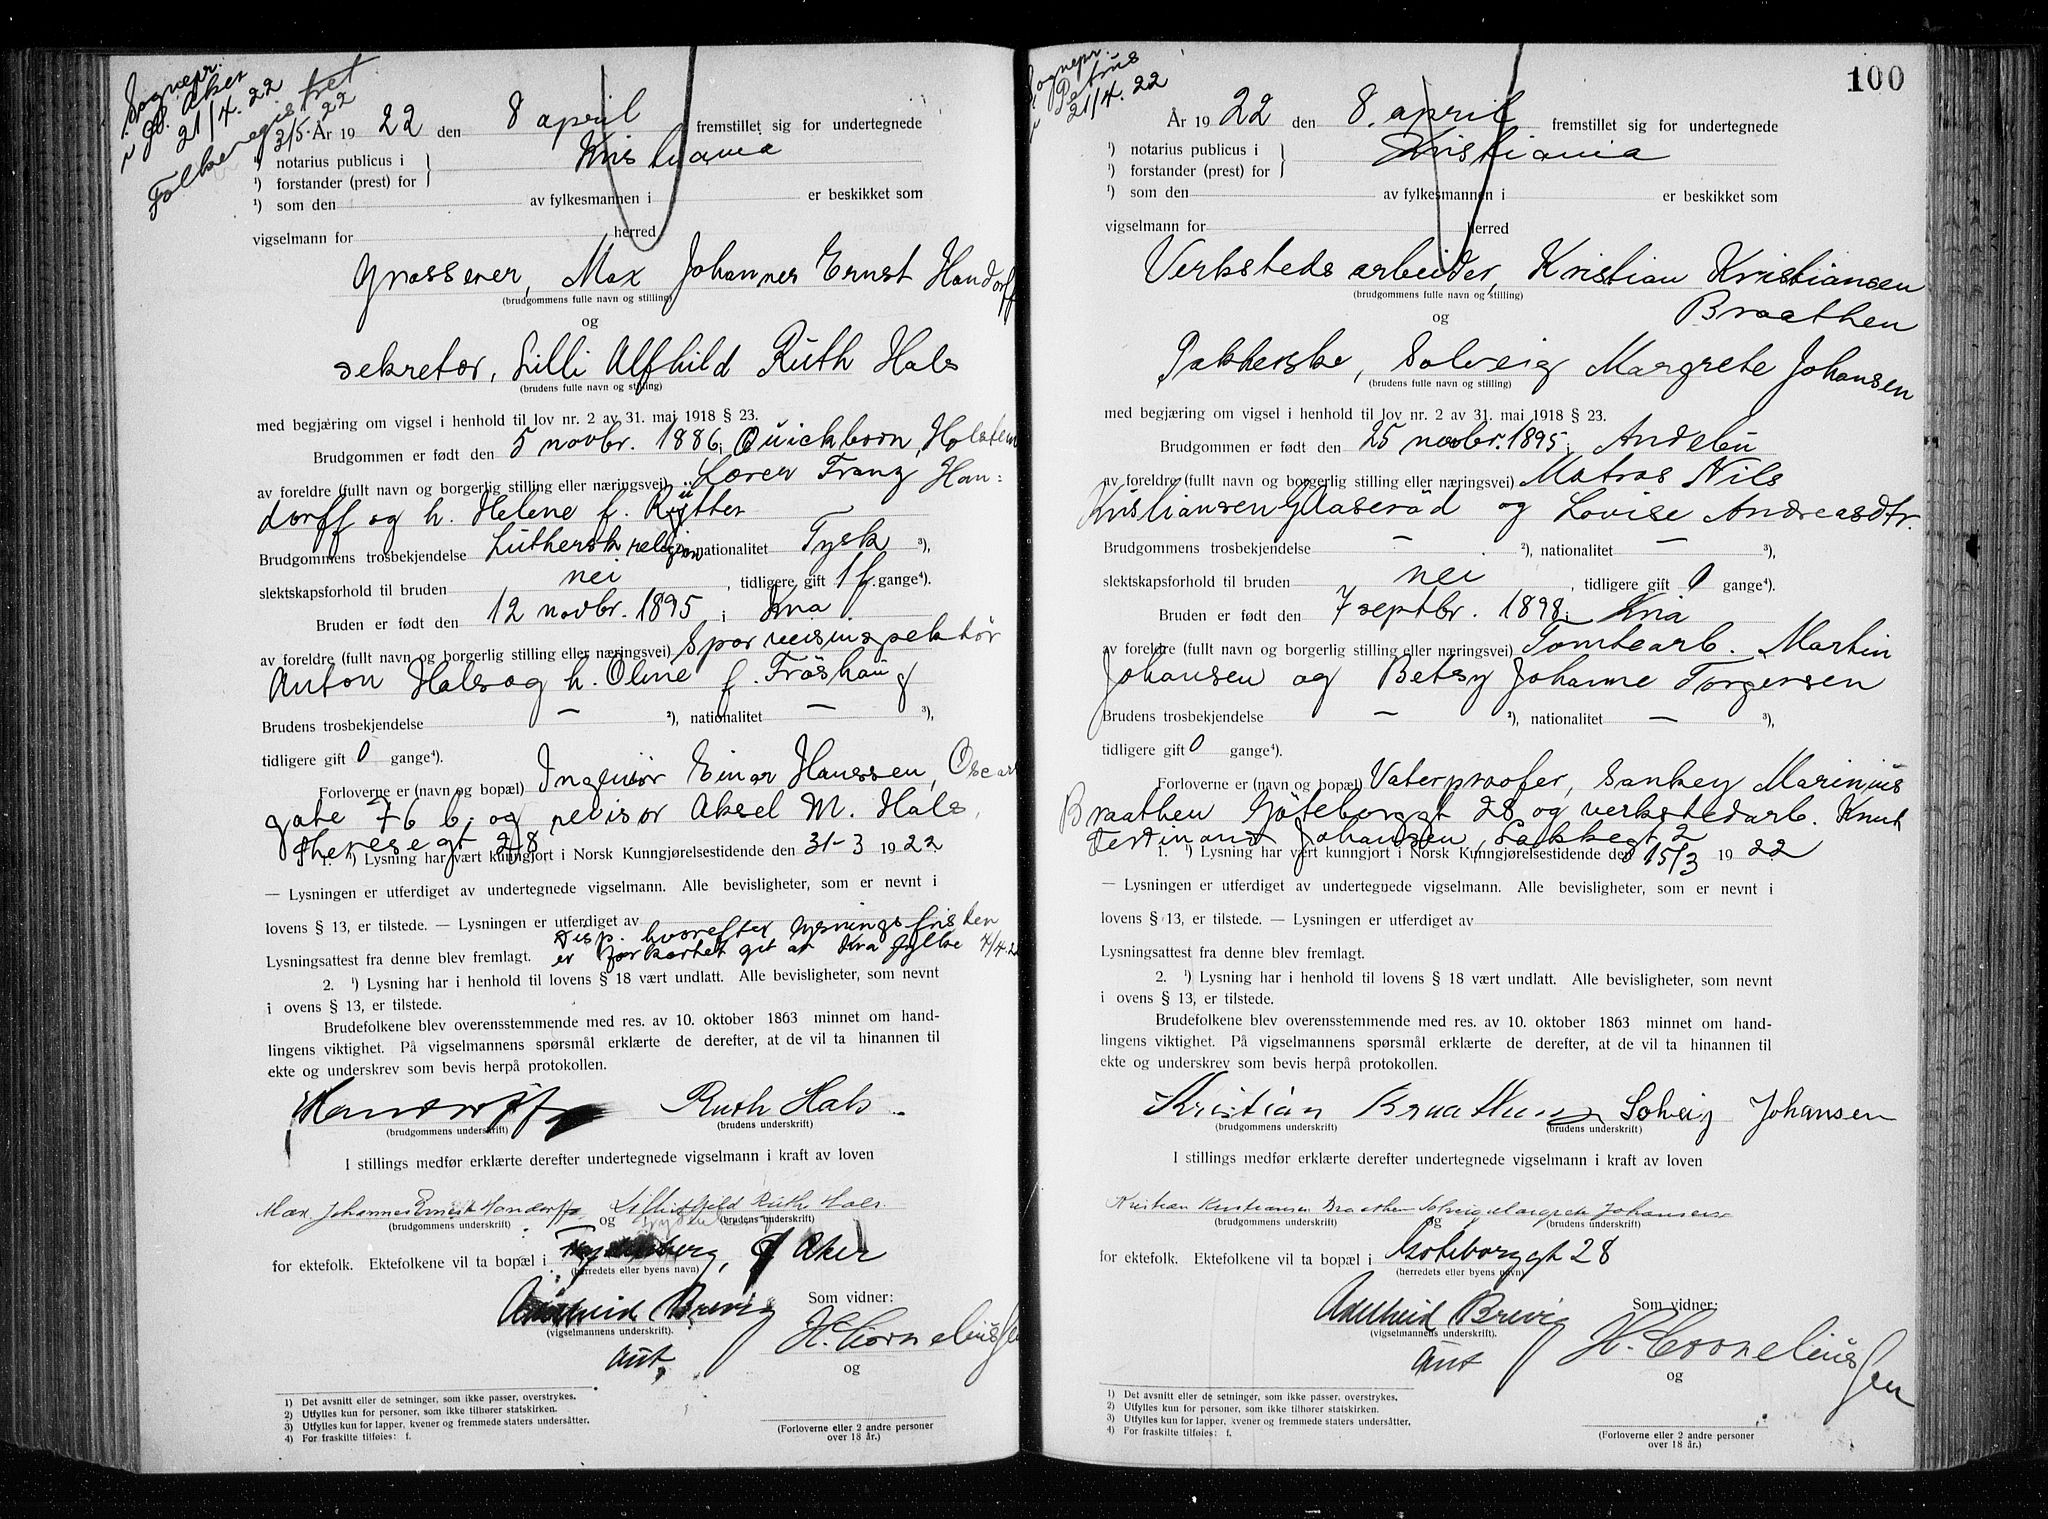 Sognepr.
Gl. Aker
21/4. 22
Folkeregistret
2/5. 22
År 1922 den 8 april fremstillet sig for undertegnede
¹) notarius publicus i } Kristiania
¹) forstander (prest) for
¹) som den av fylkesmannen i er beskikket som
vigselmann for herred
Grosserer, Max Johannes Ernst Handorff
(brudgommens fulle navn og stilling)
og
sekretær, Lilli Alfhild Ruth Hals
(brudens fulle navn og stilling)
med begjæring om vigsel i henhold til lov nr. 2 av 31. mai 1918 § 23.
Brudgommen er født den 5 novbr. 1886 i Quickborn, Holsten
av foreldre (fullt navn og borgerlig stilling eller næringsvei) Lærer Franz Han=
dorff og h. Helene f. Rütter
Brudgommens trosbekjendelse Luthersk religion nationalitet Tysk ³),
slektskapsforhold til bruden nei, tidligere gift 1 f. gange⁴).
Bruden er født den 12 novbr. 1895 i Kria
av foreldre (fullt navn og borgerlig stilling eller næringsvei) Sporveisinspektör
Anton Hals og h. Oline f. Fröshaug
Brudens trosbekjendelse — ²), nationalitet — ³),
tidligere gift 0 gange⁴).
Forloverne er (navn og bopæl) Ingeniør Einar Hanssen, Oscars
gate 76 b. og revisor Aksel M. Hals,
Theresegt 28
1. ¹) Lysning har vært kunngjort i Norsk Kunngjørelsestidende den 31-3 1922
— Lysningen er utferdiget av undertegnede vigselmann. Alle bevisligheter, som er nevnt i
lovens § 13, er tilstede. — Lysningen er utferdiget av
Disp. hvorefter lysningsfristen
Lysningsattest fra denne blev fremlagt. er forkortet git av Kria fylke 4/4.22
2. ¹) Lysning har i henhold til lovens § 18 vært undlatt. Alle bevisligheter, som nevnt
i ovens § 13, er tilstede.
Brudefolkene blev overensstemmende med res. av 10. oktober 1863 minnet om hand-
lingens viktighet. På vigselmannens spørsmål erklærte de derefter, at de vil ta hinannen til
ekte og underskrev som bevis herpå protokollen.
Handorff Ruth Hals
(brudgommens underskrift) (brudens underskrift)
I stillings medfør erklærte derefter undertegnede vigselmann i kraft av loven
Max Johannes Ernst Handorff og Lilli Alfhild Ruth Hals
(brudgommens underskrift) (brudens underskrift)
for ektefolk. Ektefolkene vil ta bopæl i Aker
(herredets eller byens navn)
Adelheid Brevig Som vidner:
(vigselmannens underskrift). H. Corneliussen
Aut. og
1) Det avsnitt eller de setninger, som ikke passer, overstrykes.
2) Utfylles kun for personer, som ikke tilhører statskirken.
3) Utfylles kun for lapper, kvener og fremmede staters undersåtter.
4) For fraskilte tilføies: f.
(Forloverne eller 2 andre personer
over 18 år.)
100
Sognepr.
Petrus
21/4. 22
År 1922 den 8. april fremstillet sig for undertegnede
¹) notarius publicus i } Kristiania
¹) forstander (prest) for
¹) som den av fylkesmannen i er beskikket som
vigselmann for herred
Verkstedsarbeider, Kristian Kristiansen
(brudgommens fulle navn og stilling)
Braathen
og
Pakkerske, Solveig Margrete Johansen
(brudens fulle navn og stilling)
med begjæring om vigsel i henhold til lov nr. 2 av 31. mai 1918 § 23.
Brudgommen er født den 25 novbr. 1895 i Andebu
av foreldre (fullt navn og borgerlig stilling eller næringsvei) Matros Nils
Kristiansen Glaseröd og Lovise Andreasdtr.
Brudgommens trosbekjendelse — ²), nationalitet — ³),
slektskapsforhold til bruden nei, tidligere gift 0 gange⁴).
Bruden er født den 7 septbr. 1898 i Kria
av foreldre (fullt navn og borgerlig stilling eller næringsvei) Tomtearb. Martin
Johansen og Betsy Johanne Torgersen
Brudens trosbekjendelse — ²), nationalitet — ³),
tidligere gift 0 gange⁴).
Forloverne er (navn og bopæl) Vaterproofer, Sankey Marinius
Braathen Göteborggt 28 og verkstedarb. Knut
Ferdinand Johansen, Lakkegt 2
1. ¹) Lysning har vært kunngjort i Norsk Kunngjørelsestidende den 15/3 1922
— Lysningen er utferdiget av undertegnede vigselmann. Alle bevisligheter, som er nevnt i
lovens § 13, er tilstede. — Lysningen er utferdiget av
Lysningsattest fra denne blev fremlagt.
2. ¹) Lysning har i henhold til lovens § 18 vært undlatt. Alle bevisligheter, som nevnt
i ovens § 13, er tilstede.
Brudefolkene blev overensstemmende med res. av 10. oktober 1863 minnet om hand-
lingens viktighet. På vigselmannens spørsmål erklærte de derefter, at de vil ta hinannen til
ekte og underskrev som bevis herpå protokollen.
Kristian Braathen Solveig Johansen
(brudgommens underskrift) (brudens underskrift)
I stillings medfør erklærte derefter undertegnede vigselmann i kraft av loven
Kristian Kristiansen Braathen og Solveig Margrete Johansen
(brudgommens underskrift) (brudens underskrift)
for ektefolk. Ektefolkene vil ta bopæl i Göteborggt 28
(herredets eller byens navn)
Adelheid Brevig Som vidner:
(vigselmannens underskrift). H. Corneliussen
Aut og
1) Det avsnitt eller de setninger, som ikke passer, overstrykes.
2) Utfylles kun for personer, som ikke tilhører statskirken.
3) Utfylles kun for lapper, kvener og fremmede staters undersåtter.
4) For fraskilte tilføies: f.
(Forloverne eller 2 andre personer
over 18 år.)